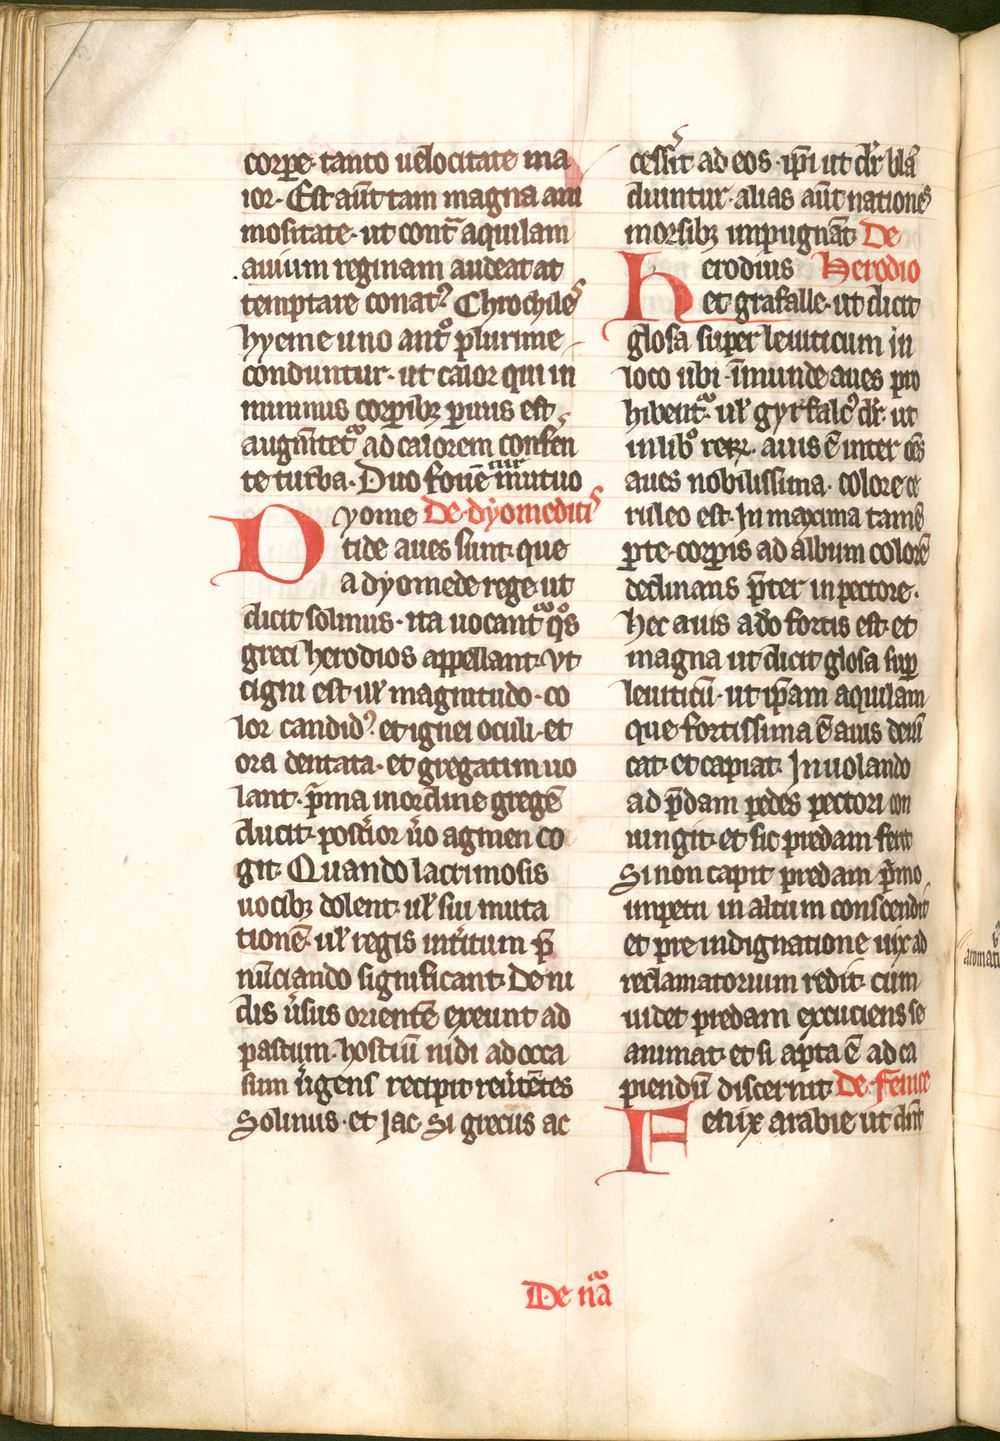 corpe· tanto uelocitate ma
ior· Est aūt tam magna ani
mositate· ut contͣ aquilam
auium reginam audeat at
temptare conatꝰ· Chrochiles
hyeme uno antͦ plurime
conduntur· ut calor qui in
minimus corpibꝫ paruus est
augmtetͬ ad calorem confen
te turba· Duo fouē mutuo
Dyome De dyomeditis
tide aues sunt· que
a dyomede rege· ut
dicit solinus· ita uocantͬ qͦs
greci herodios appellant· Vt
cigni est ul̓ magnitudo· co
lor candidꝰ· et ignei oculi· et
ora dentata· et gregatim uo
lant· p̄ma in ordine gregē
ducit· post̓ior ūo agmen co
git· Quando lacrimosis
uocibꝫ dolent· ul̓ sui muta
tionē· ul̓ regis int̓itum p̄
nūciando significant· De ni
dis ūsus orientē exeunt ad
pastum· hostiū nidi ad occa
sum ūgens recipit reūtētes
Solinus· et Jac· Si grecus ac
cess̓it ad eos· ip̄i ut dr̄ blā
diuntur· alias aūt nationes
morsibꝫ impugnāt· De
Herodius Herodio
et grafalle· ut dicit
glosa super leuiticum in
loco ubi īmunde aues pro
hibentͬ· ul̓ gyrfalcꝰ dr̄· ut
in libͦ reꝝ· auis ē inter oēs
aues nobilissima· colore ce
ruleo est· In maxima tamē
ꝑte corpis ad album colorē
declinans p̄ter in pectore·
Hec auis adͦo fortis est et
magna ut dicit glosa suꝑ
leuiticū· ut ip̄am aquilam
que fortissima ē auis deui
cat· et capiat· In uolando
ad p̄dam pedes pectori con
iungit· et sic predam ferit
Si non capit predam p̄mo
impetu in altum conscendit
et pre indignatione uix ad
reclamatorium redit· cum
uidet predam excuciens se
animat· et si apta ē ad ca
piendū discernit· De fenice
Fenix arabie ut dicit
De nͣa